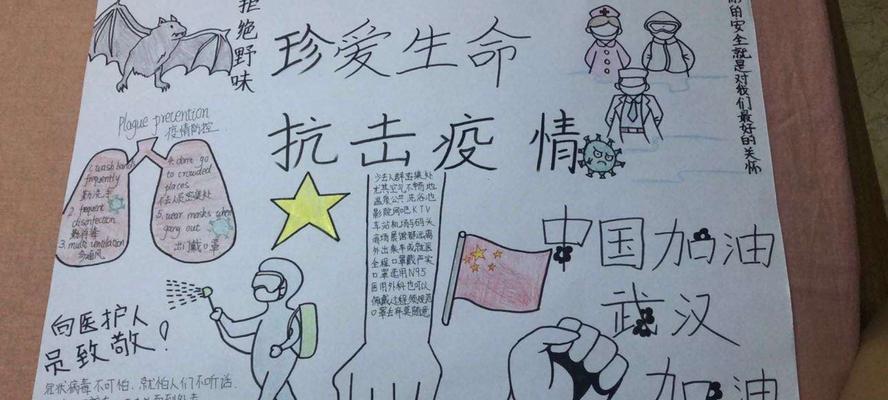 拒绝野味
珍爱生命
抗击疫情
的安全就是对我们最好的关怀
Plague precention
疫情防控
1. wash hands
frequently
勤洗手
2. frequent
disinfection
勤消毒
3. multi ventilation
多通风
4. don't go
to crowded
places
不去人员密集处
5. wear masks when
going out
出门戴口罩
少去人群密集处
尤其空气不畅地
温泉公共洗浴池
影院网吧KTV
车站机场与码头
商场展馆都远离
外出乘车或就医
全程口罩戴严实
口罩选用N95
医用外科也可以
佩戴过程须规范
口罩去弃莫随意
中国加油
武汉
加油
向医护人
员致敬！
冠状病毒不可怕，就怕人们不听话.